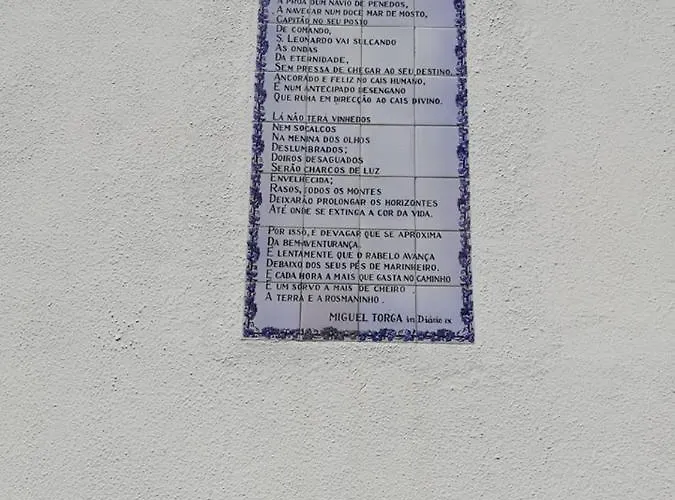 À PROA DUM NAVIO DE PENEDOS,
A NAVEGAR NUM DOCE MAR DE MOSTO,
CAPITÃO NO SEU POSTO
DE COMANDO,
S. LEONARDO VAI SULCANDO
AS ONDAS
DA ETERNIDADE,
SEM PRESSA DE CHEGAR AO SEU DESTINO.
ANCORADO E FELIZ NO CAIS HUMANO,
É NUM ANTECIPADO DESENGANO
QUE RUMA EM DIRECÇÃO AO CAIS DIVINO.
LÁ NÃO TERÁ VINHEDOS
NEM SOCALCOS
NA MENINA DOS OLHOS
DESLUMBRADOS;
DOIROS DESAGUADOS
SERÃO CHARCOS DE LUZ
ENVELHECIDA;
RASOS, TODOS OS MONTES
DEIXARÃO PROLONGAR OS HORIZONTES
ATÉ ONDE SE EXTINGA A COR DA VIDA.
POR ISSO, É DEVAGAR QUE SE APROXIMA
DA BEM-AVENTURANÇA.
É LENTAMENTE QUE O RABELO AVANÇA
DEBAIXO DOS SEUS PÉS DE MARINHEIRO.
E CADA HORA A MAIS QUE GASTA NO CAMINHO
É UM SORVO A MAIS DE CHEIRO
A TERRA E A ROSMANINHO.
MIGUEL TORGA in Diário IX